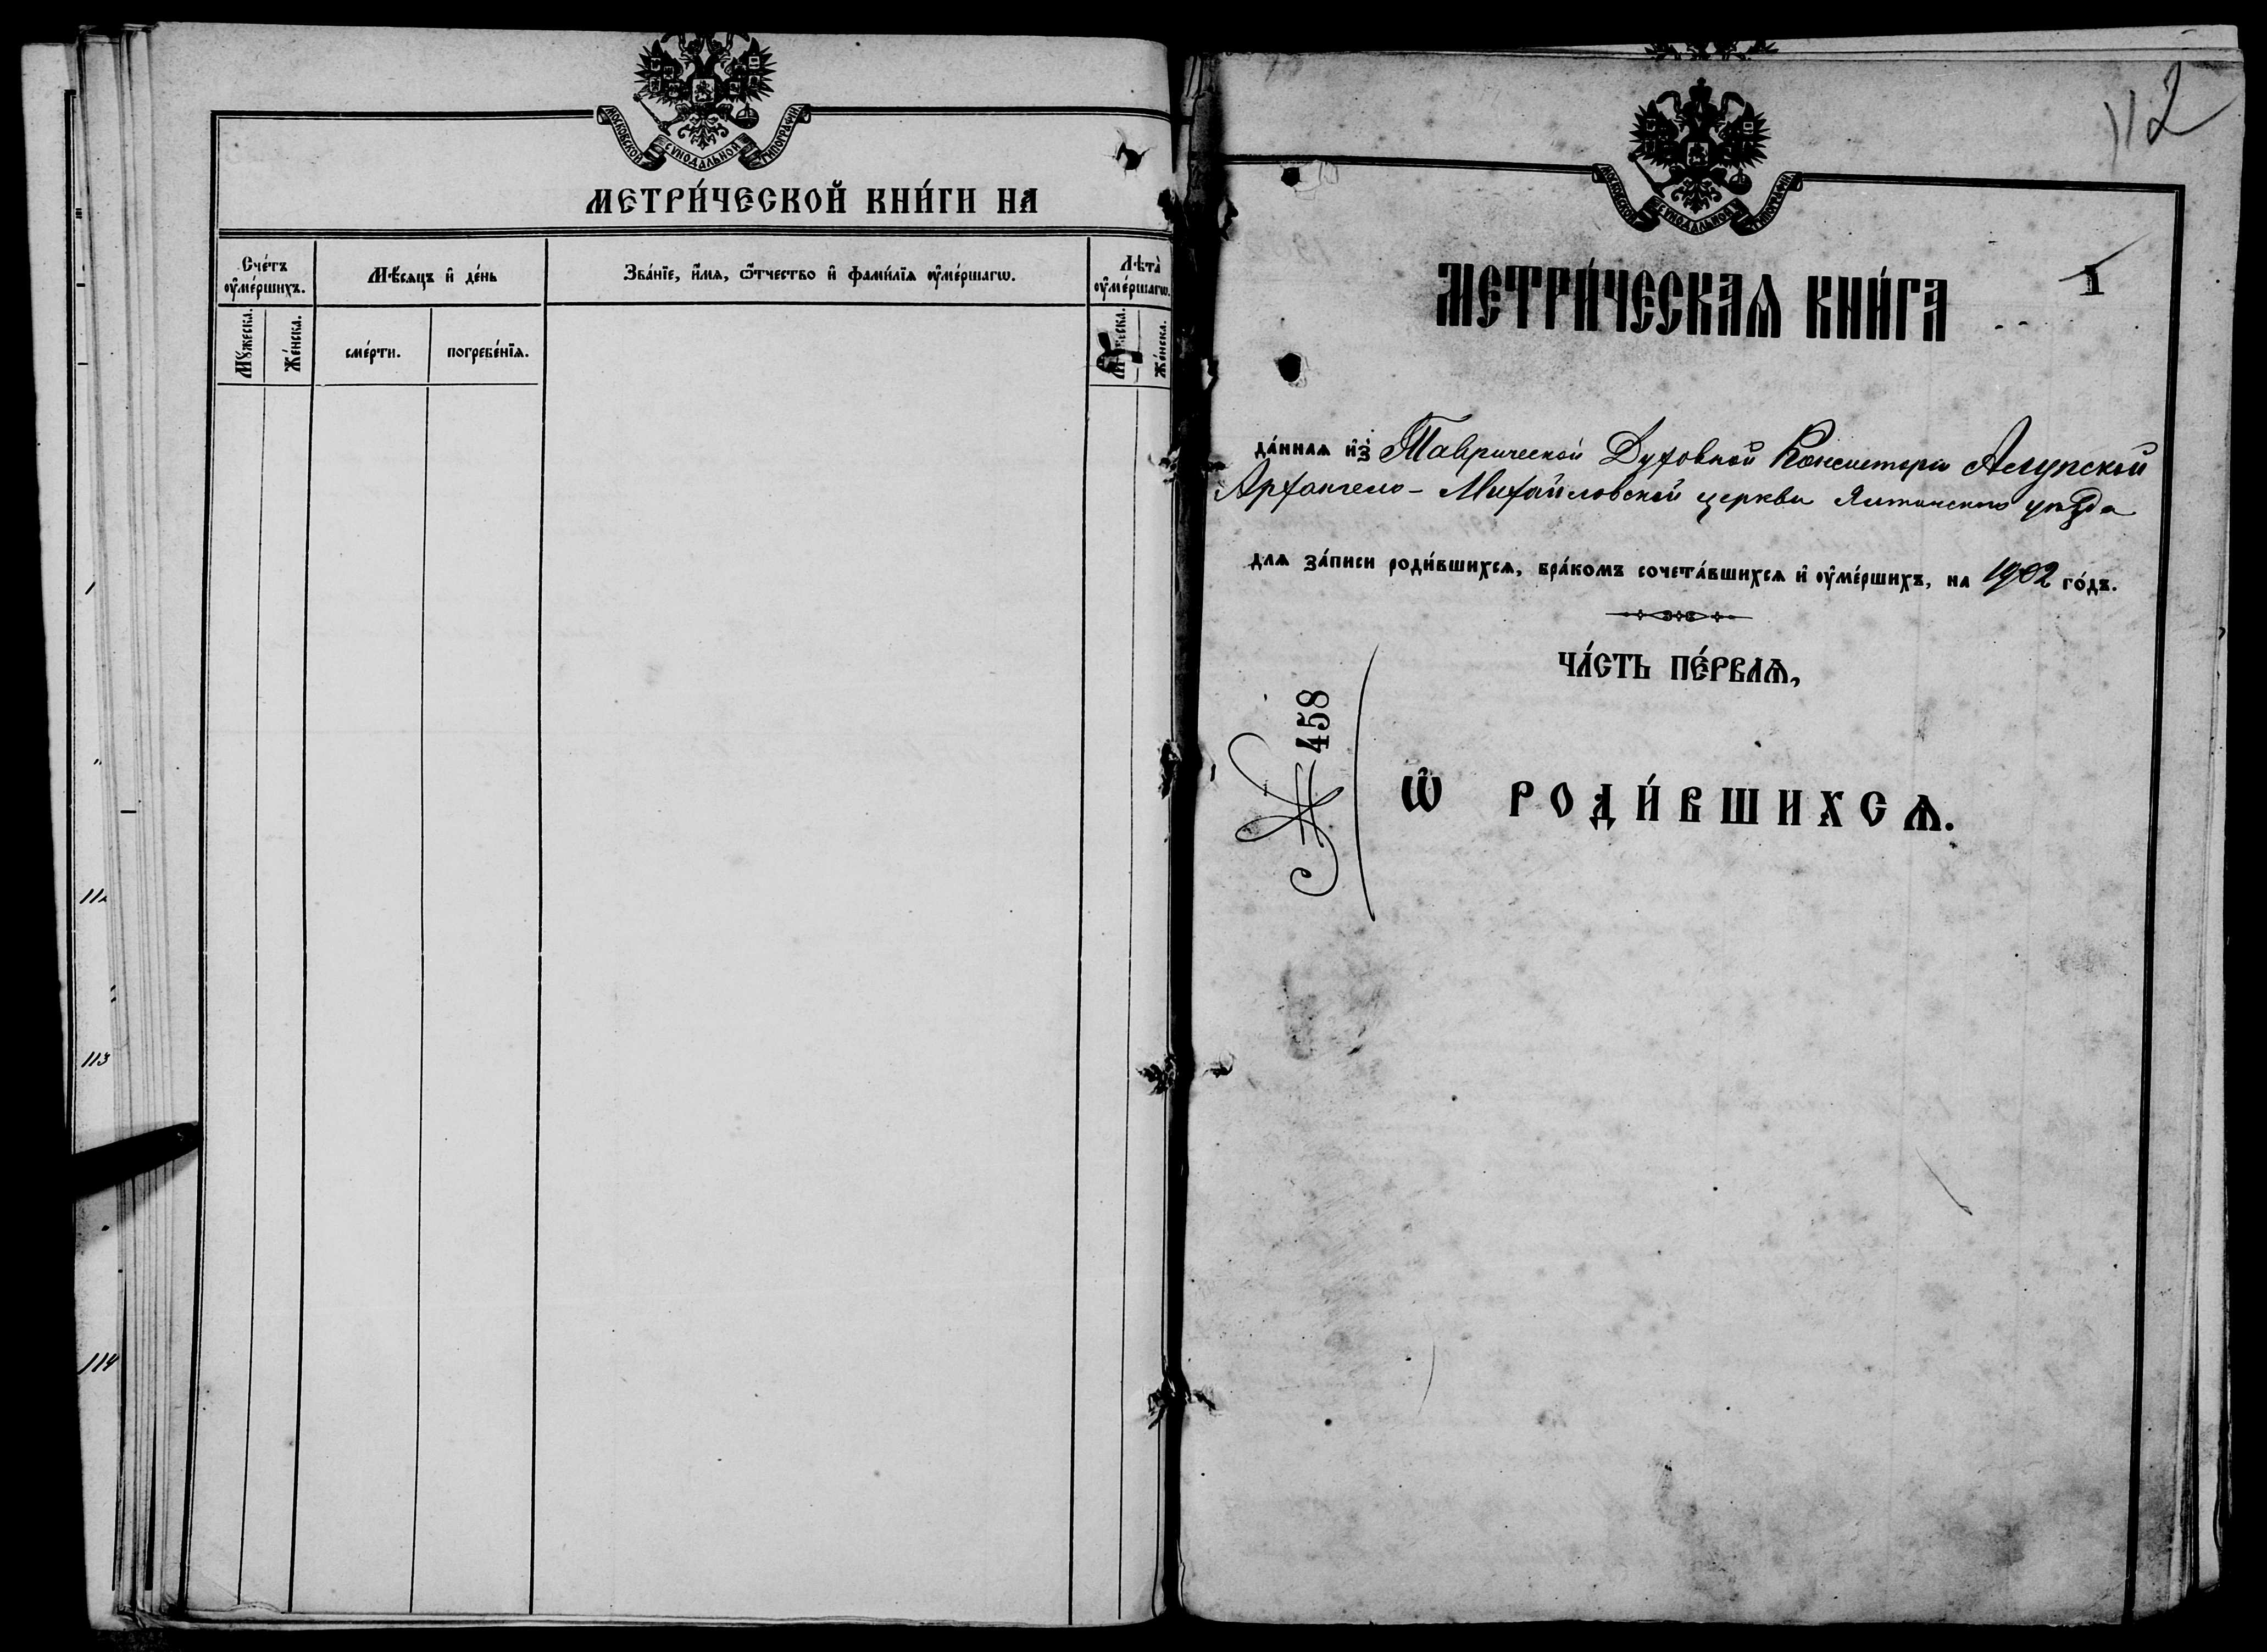 МОСКОВСКОЙ СѴНОДАЛЬНОЙ ТИПОГРАФИИ
МЕТРИ́ЧЕСКОЙ КНИ́ГИ НА
Сче́тъ ᲂу҆ме́ршихъ.
Мѣ́сяцъ и҆ де́нь
Зва́нїе, и҆́мя, ѿчество и҆ фами́лїя ᲂу҆ме́ршагѡ.
Лѣта̀ ᲂу҆ме́ршагѡ.
Мꙋжеска.
Же́нска.
сме́рти.
погребе́нїя.
Же́нска.
112
113
114
112
МОСКОВСКОЙ СѴНОДАЛЬНОЙ ТИПОГРАФИИ
МЕТРИ́ЧЕСКАѦ КНИ́ГА
1
да́нная и҆з̾ Таврической Духовной Консистории Алупской
Архангело-Михайловской церкви Ялтинского уѣзда
для за́писи роди́вшихся, бра́комъ сочета́вшихся и҆ ᲂу҆ме́ршихъ, на 1902 го́дъ.
ЧА́СТЬ ПЕ́РВАѦ,
№ 458
Ѽ РОДИ́ВШИХСѦ.